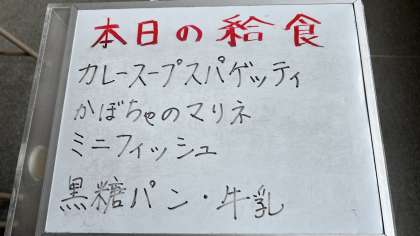 本日の給食
カレースープスパゲッティ
かぼちゃのマリネ
ミニフィッシュ
黒糖パン・牛乳